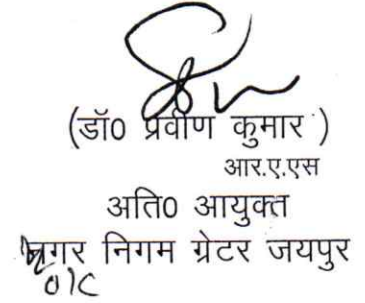 (डॉ0 प्रवीण कुमार )
आर.ए.एस
अति0 आयुक्त
नगर निगम ग्रेटर जयपुर
O/C